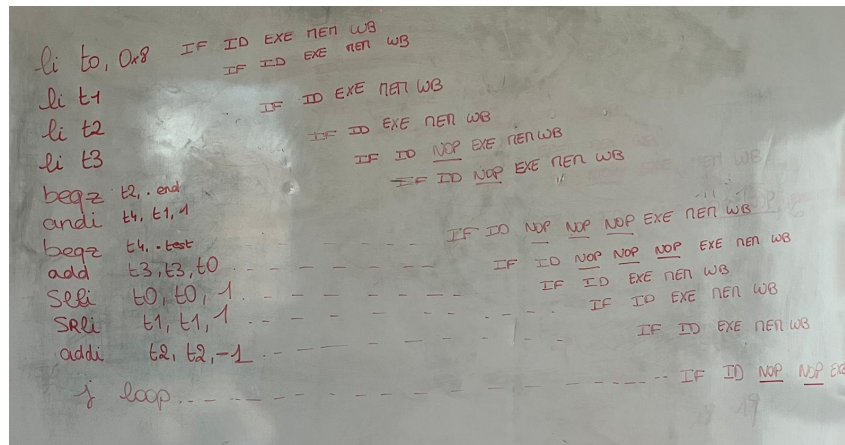 li t0, 0x8 IF ID EXE MEM WB
li t1 IF ID EXE MEM WB
li t2 IF ID EXE MEM WB
li t3 IF ID EXE MEM WB
beqz t2, .end IF ID NOP EXE MEM WB
andi t4, t1, 1 IF ID NOP EXE MEM WB
beqz t4, .test IF ID NOP NOP NOP EXE MEM WB
add t3, t3, t0 IF ID NOP NOP NOP EXE MEM WB
slli t0, t0, 1 IF ID EXE MEM WB
SRli t1, t1, 1 IF ID EXE MEM WB
addi t2, t2, -1 IF ID EXE MEM WB
j loop IF ID NOP NOP EXE